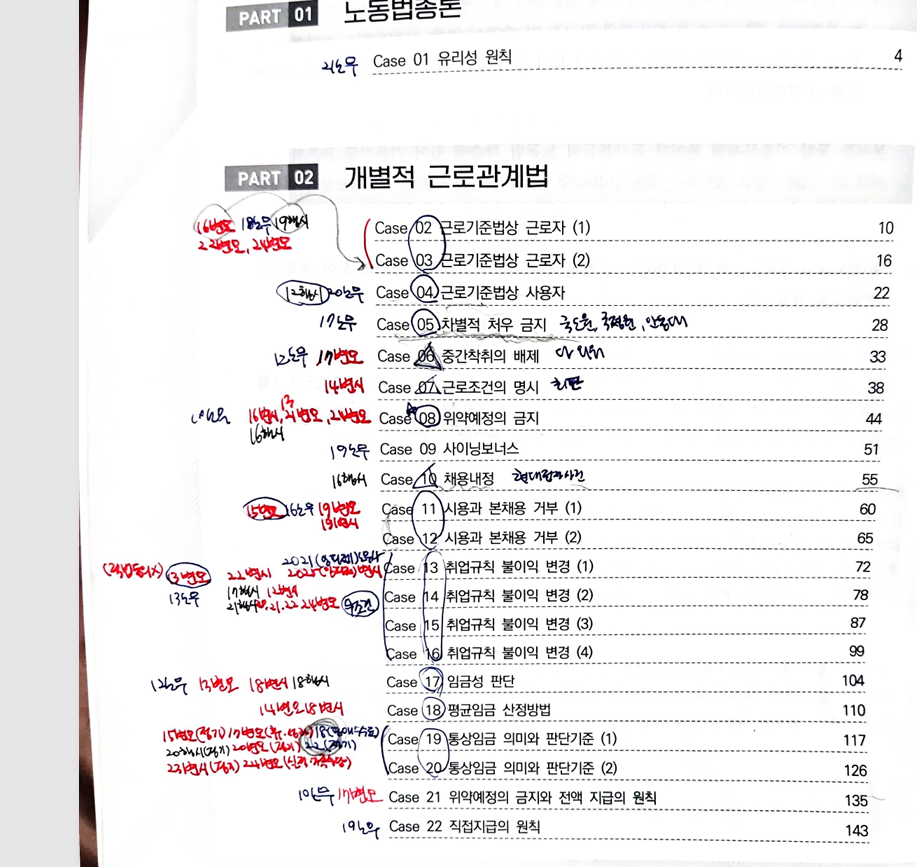 PART 01 노동법총론
21노무 Case 01 유리성 원칙 4
PART 02 개별적 근로관계법
16변모 18노무 19행시
22변모, 24변모
Case 02 근로기준법상 근로자 (1) 10
Case 03 근로기준법상 근로자 (2) 16
12행시 20노무 Case 04 근로기준법상 사용자 22
17노무 Case 05 차별적 처우 금지 국도원, 국정원, 안동대 28
12노무 17변모 Case 06 중간착취의 배제 33
14변시 Case 07 근로조건의 명시 38
16변시, 21변모, 24변모 Case 08 위약예정의 금지 44
13
16행시
19노무 Case 09 사이닝보너스 51
16행시 Case 10 채용내정 현대전자사건 55
15변모 16노무 19변모 Case 11 시용과 본채용 거부 (1) 60
19변시
Case 12 시용과 본채용 거부 (2) 65
13변모 22변시 Case 13 취업규칙 불이익 변경 (1) 72
13노무 17행시 12변시 Case 14 취업규칙 불이익 변경 (2) 78
21.22 24변모
Case 15 취업규칙 불이익 변경 (3) 87
Case 16 취업규칙 불이익 변경 (4) 99
12노무 13변모 18변시 18행시 Case 17 임금성 판단 104
14변모 18변시 Case 18 평균임금 산정방법 110
15변모(정기) 17변모
Case 19 통상임금 의미와 판단기준 (1) 117
20행시(정기) 20변모(정기) 22(정기)
23변시(정기) 24변모
Case 20 통상임금 의미와 판단기준 (2) 126
10노무 17변모 Case 21 위약예정의 금지와 전액 지급의 원칙 135
19노무 Case 22 직접지급의 원칙 143